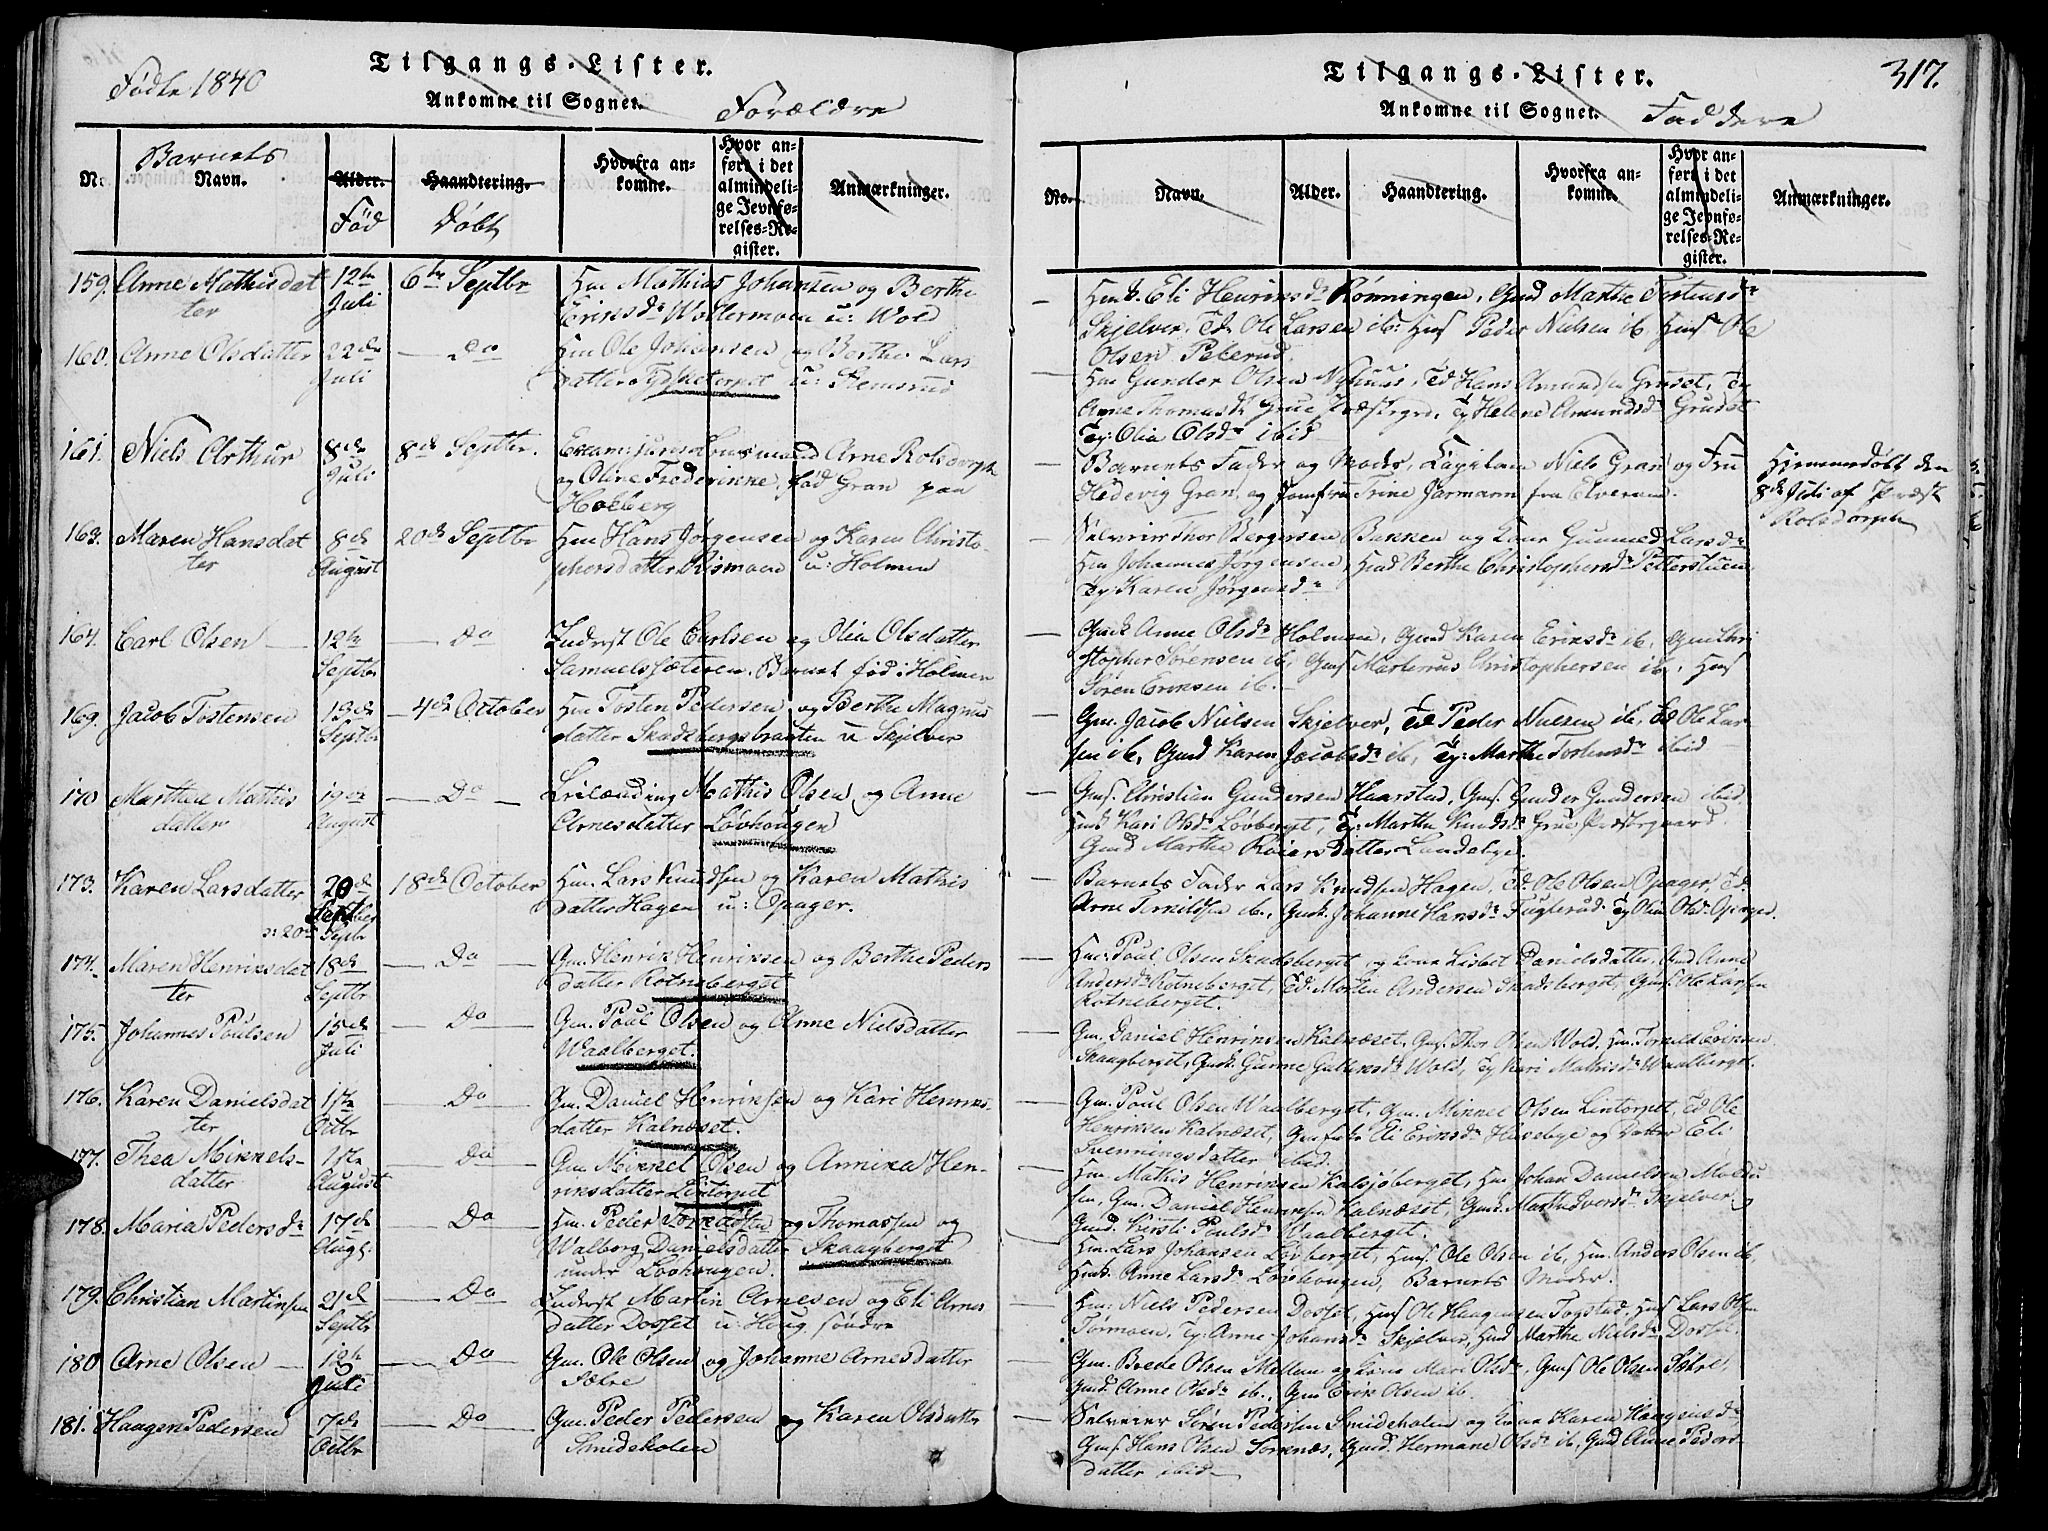 Fødte 1840
Tilgangs-Lister.
Ankomne til Sognet.
Forældre
No.
Barnets
Navn.
Alder.
Fød
Haandtering.
Døbt
Hvorfra an-
komne.
Hvor an-
ført i det
almindeli-
ge Jevnfø-
relses-Re-
gister.
Anmærkninger.
159. Anne Mathisdat 12te 6te Septbr Hm Mathias Johansen og Berthe
ter Juli Eriksdr Wollermoen u: Wold
160. Anne Olsdatter 22de — Do Hm Ole Johansen og Berthe Lars
Juli datter Tydsketorpet u: Stemsrud
161. Niels Arthur 8de 8de Septbr. Exam: juris Lensmand Arne Rolsdorph
Juli og Oline Frederikke fød Gran paa
Holberg
163. Maren Hansdat 8de 20de Septbr Hm Hans Jørgensen og Karen Christo-
ter August phersdatter Riismoen u: Holmen
164. Carl Olsen — 12te — Do Inderst Ole Carlsen og Olia Olsdatter
Septbr Samuelssæteren. Barnet fød i Holmen
169. Jacob Tostensen 13de — 4de October Hm Tosten Pedersen og Berthe Magnus
Septbr datter Skadsbergsbraaten u Skjelver
170 Marthea Mathis 19de — Do — Leilænding Mathis Olsen og Anne
datter August Arnesdatter Løvhougen
173. Karen Larsdatter 20de 18de October Hm. Lars Knudsen og Karen Mathis
Septber datter Hagen u: Opager.
20de Septbr
174. Maren Henriksdat 18de — Do Gm. Henrik Henriksen og Berthe Peders
ter Septbr datter Rotneberget
175. Johannes Poulsen 15de — Do Gm. Poul Olsen og Anne Nielsdatter
Juli Waalberget.
176. Karen Danielsdat 1ste — Do Gm. Daniel Henriksen og Kari Henriks-
ter Octbr datter Kalnæset.
177. Thea Mikkels- 1ste Do Gm Mikkel Olsen og Annika Hen-
datter August riksdatter Lintorpet
178. Maria Pedersdr 17de — Do Hm. Peder Thomassen og
Augst. Walborg Danielsdatter Skaagberget
under Lovhougen.
179. Christian Martinsen 21de — Do Inderst Martin Arnesen og Eli Arnes
Septbr datter Dosset u: Houg søndre
180 Arne Olsen — 12te — Do Gm. Ole Olsen og Johanne Arnesdatter
Juli Sætre
181. Haagen Pedersen 7de — Do Gm. Peder Pedersen og Karen Olsdatter
Octbr Smideholen
Tilgangs-Lister.
Ankomne til Sognet.
Faddere
317.
No.
Navn.
Alder.
Haandtering.
Hvorfra an-
komne.
Hvor an-
ført i det
almindeli-
ge Jevnfø-
relses-Re-
gister.
Anmærkninger.
— Hmk. Eli Henriksdr Rönningen, Gmd Marthe Tostensdr
Skjelver, Td. Ole Larsen ib: Hms Peder Nielsen ib Hms Ole
Olsen Peterud.
— Hm Gunder Olsen Nyhuus, Td Hans Amundsen Gruset, Ty
Anne Thomasdr Grue Præstegrd, Ty Helene Amundsdr Gruset
Ty: Olia Olsdr ibid
— Barnets Fader og Moder, Capitain Niels Gran og Fru
Hedevig Gran, og Jomfru Trine Jarmann fra Elverum.
Hjemmedøbt den
8de Juli af Præst
Rolsdorph
— Selveier Thor Bergersen Bakken og Kone Gunnild Larsdr
Hm Johannes Jørgensen, Hmd Berthe Christophersdr Petterstuen,
Ty: Karen Jørgensdr
— Gmk Anne Olsdr Holmen, Gmd Karen Eriksdr ib, Gm Chri
stopher Sørensen ib, Gms Martinus Christophersen ib, Hms
Søren Eriksen ib.
— Gm. Jacob Nielsen Skjelver, Td Peder Nielsen ib, Td Ole Lar-
sen ib, Gmd Karen Jacobsdr ib, Ty: Marthe Tostensdr ibid
— Gms. Christian Gundersen Haarstad, Gms. Gunder Gundersen ibid,
Hmd Kari Olsdr Løvberget, Ty: Marthe Knudsdr Grue Præstegaard
Gmd Marthe Reiersdatter Landebye.
— Barnets Fader Lars Knudsen Hagen, Td: Ole Olsen Opager, Td.
Arne Ternildsen ib., Gmk. Johanne Hansdr Fuglerud. Ty Olia Olsdr Opager
— Hm: Poul Olsen Skadsberget, og kone Lisbet Danielsdatter, Gmd Anne
Andersdr Rotneberget, Td: Morten Andersen Skadsberget, Gms: Ole Larsen
Rotneberget.
— Gm. Daniel Henriksen Kalnæset, Gms. Thor Olsen Wold, Hm. Tornild Eriksen
Skaagberget, Gmk. Gunne Guldensdr Wold, Ty Kari Mathisdr Waalberget.
— Gm. Poul Olsen Waalberget, Gm. Mikkel Olsen Lintorpet, Td Ole
Henriksen Kalnæset, Eli Eriksdr Husebye og Datter Eli
Svenningsdatter ibid.
— Hm. Mathis Henriksen Kalsjøberget, Hm Johan Danielsen
Gm. Daniel Henriksen Kalnæset, Gmd. Marthe Iversdr Skjelver,
Gmd. Kirsti Poulsdr Waalberget.
— Hm. Lars Johansen Løvberget, Hms Ole Olsen ib, Hm. Anders Olsen ib,
Hmk. Anne Larsdr Løvhougen, Barnets Moder.
— Hm: Niels Pedersen Dosset, Hms Ole Haagensen Togstad, Hms Lars Olsen
Tørmoen, Ty: Anne Johansdr Skjelver, Hmd Marthe Nielsdr Dosset
— Gm. Brede Olsen Mellem og kone Mari Olsdr, Gms Ole Olsen Sætre,
Gmd. Anne Olsdr ib., Gm Erik Olsen ib.
— Selveier Søren Pedersen Smideholen og Kone Karen Haagensdr
Gms. Hans Olsen Sornæs, Gmd. Hermane Olsdr ib, Gmd Anne Peders
datter ibid